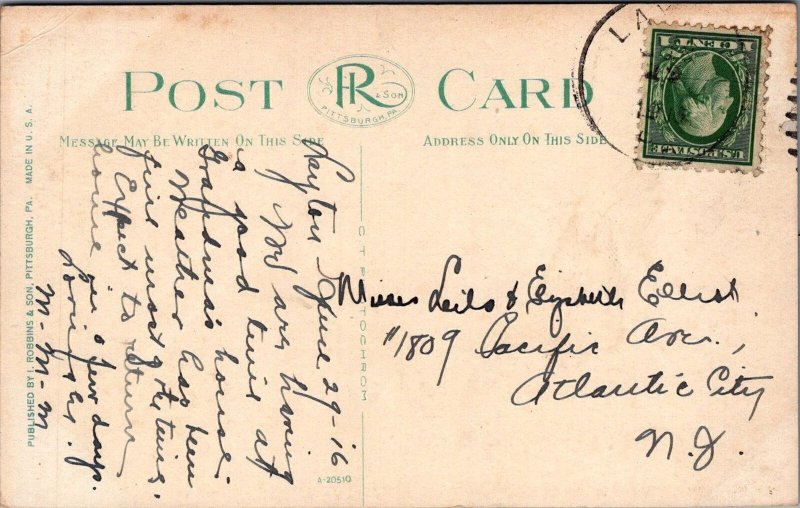 POST CARD
R & SON
PITTSBURGH, PA.
MESSAGE MAY BE WRITTEN ON THIS SIDE
ADDRESS ONLY ON THIS SIDE
LA
1 CENT 1
U.S. POSTAGE
Layton June 29-16
are having
a good time at
Grandma's house.
Weather has been
fine most of the time.
Expect to return
home in a few days.
Lovingly.
M-M-M
Misses Leila & Elizabeth Elliot
#1809 Pacific Ave.,
Atlantic City
N.J.
C.T. PHOTOCHROM
A-20510
PUBLISHED BY I. ROBBINS & SON, PITTSBURGH, PA. MADE IN U.S.A.